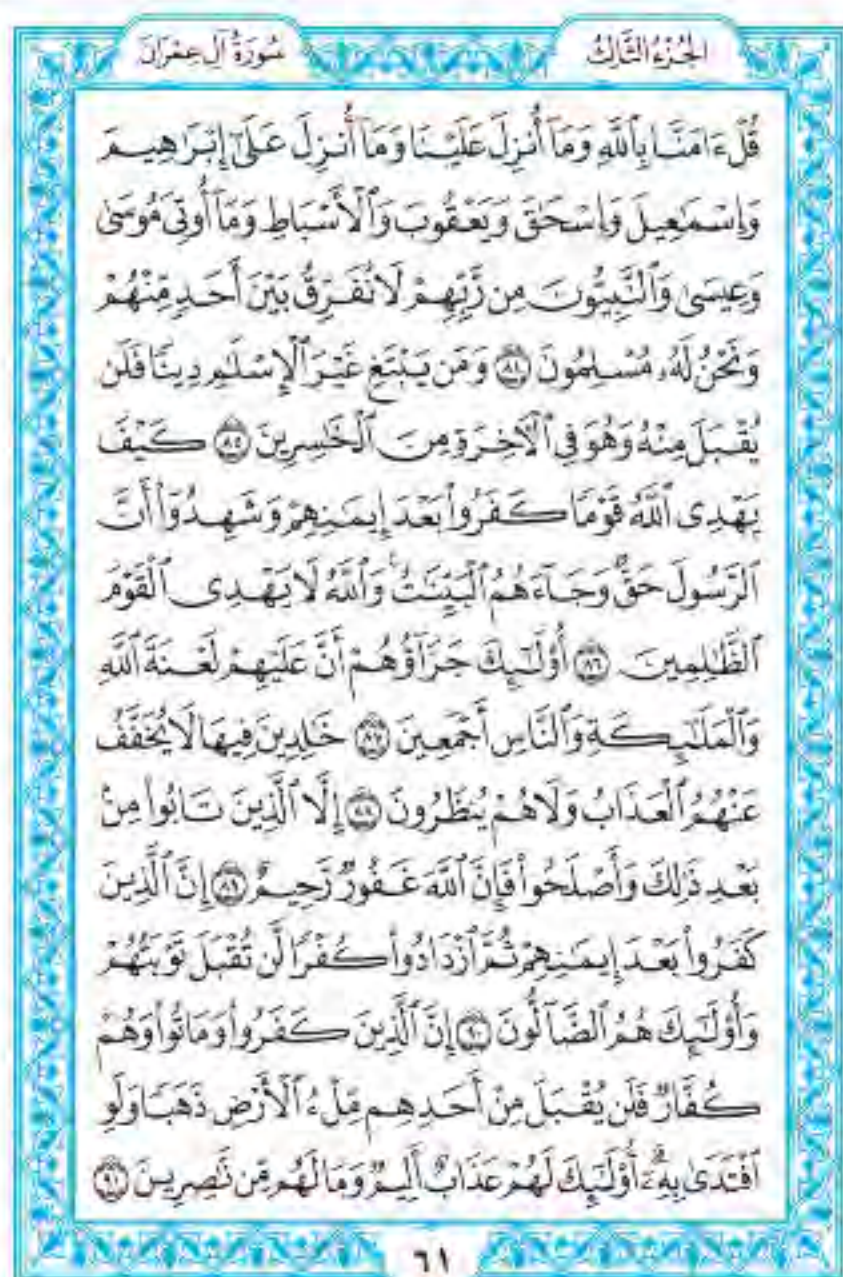 الجُزْءُ الثَّالِثُ
سُورَةُ آلِ عِمْرَانَ
قُلْ ءَامَنَّا بِٱللَّهِ وَمَآ أُنزِلَ عَلَيْنَا وَمَآ أُنزِلَ عَلَىٰٓ إِبْرَٰهِيمَ
وَإِسْمَٰعِيلَ وَإِسْحَٰقَ وَيَعْقُوبَ وَٱلْأَسْبَاطِ وَمَآ أُوتِىَ مُوسَىٰ
وَعِيسَىٰ وَٱلنَّبِيُّونَ مِن رَّبِّهِمْ لَا نُفَرِّقُ بَيْنَ أَحَدٍ مِّنْهُمْ
وَنَحْنُ لَهُۥ مُسْلِمُونَ ٨٤ وَمَن يَبْتَغِ غَيْرَ ٱلْإِسْلَٰمِ دِينًا فَلَن
يُقْبَلَ مِنْهُ وَهُوَ فِى ٱلْـَٔاخِرَةِ مِنَ ٱلْخَٰسِرِينَ ٨٥ كَيْفَ
يَهْدِى ٱللَّهُ قَوْمًا كَفَرُوا۟ بَعْدَ إِيمَٰنِهِمْ وَشَهِدُوٓا۟ أَنَّ
ٱلرَّسُولَ حَقٌّ وَجَآءَهُمُ ٱلْبَيِّنَٰتُ ۚ وَٱللَّهُ لَا يَهْدِى ٱلْقَوْمَ
ٱلظَّٰلِمِينَ ٨٦ أُو۟لَٰٓئِكَ جَزَآؤُهُمْ أَنَّ عَلَيْهِمْ لَعْنَةَ ٱللَّهِ
وَٱلْمَلَٰٓئِكَةِ وَٱلنَّاسِ أَجْمَعِينَ ٨٧ خَٰلِدِينَ فِيهَا لَا يُخَفَّفُ
عَنْهُمُ ٱلْعَذَابُ وَلَا هُمْ يُنظَرُونَ ٨٨ إِلَّا ٱلَّذِينَ تَابُوا۟ مِنۢ
بَعْدِ ذَٰلِكَ وَأَصْلَحُوا۟ فَإِنَّ ٱللَّهَ غَفُورٌ رَّحِيمٌ ٨٩ إِنَّ ٱلَّذِينَ
كَفَرُوا۟ بَعْدَ إِيمَٰنِهِمْ ثُمَّ ٱزْدَادُوا۟ كُفْرًا لَّن تُقْبَلَ تَوْبَتُهُمْ
وَأُو۟لَٰٓئِكَ هُمُ ٱلضَّآلُّونَ ٩٠ إِنَّ ٱلَّذِينَ كَفَرُوا۟ وَمَاتُوا۟ وَهُمْ
كُفَّارٌ فَلَن يُقْبَلَ مِنْ أَحَدِهِم مِّلْءُ ٱلْأَرْضِ ذَهَبًا وَلَوِ
ٱفْتَدَىٰ بِهِۦٓ ۗ أُو۟لَٰٓئِكَ لَهُمْ عَذَابٌ أَلِيمٌ وَمَا لَهُم مِّن نَّٰصِرِينَ ٩١
٦١